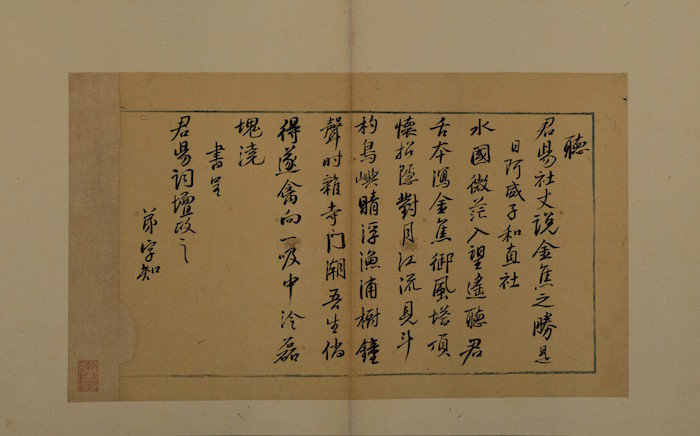 聽
君昜社丈説金焦之勝是
日阿咸子和直社
水國微茫入望遙聽君
舌本瀉金焦御風塔頂
懷松隱對月江流見斗
杓鳥嶼晴浮漁浦樹鐘
聲時雜寺门潮吾生倘
得遂禽向一吸中泠磊
塊澆
書呈
君昜詞壇政之
弟字知